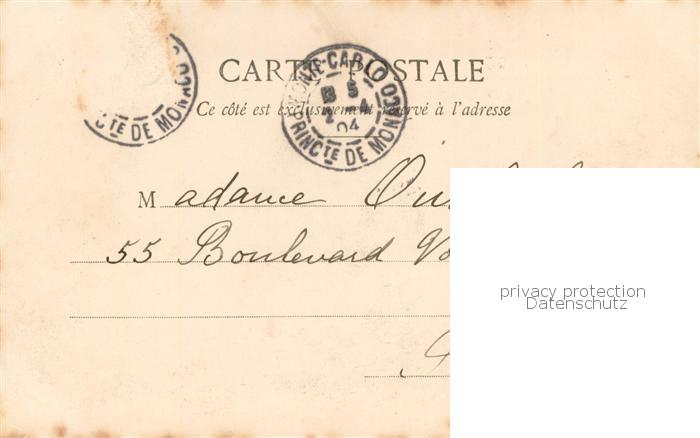 CARTE POSTALE
Ce côté est exclusivement réservé à l'adresse
MONTE-CARLO
04
PRINCTÉ DE MONACO
CTÉ DE MONACO
Madame
55 Boulevard
privacy protection
Datenschutz